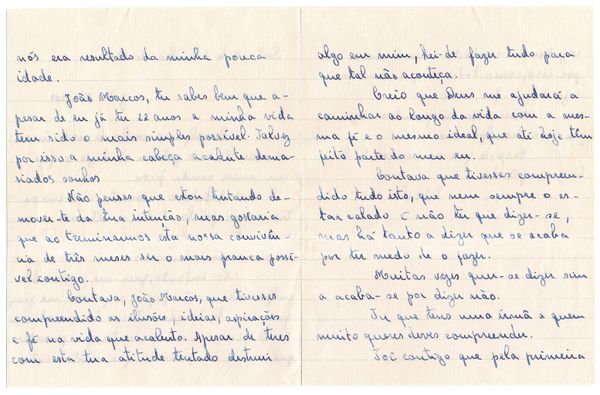 nós era resultado da minha pouca
idade.
João Marcos, tu sabes bem que a-
pesar de eu já ter 22 anos a minha vida
tem sido o mais simples possível. Talvez
por isso a minha cabeça acalente dema-
siados sonhos
Não penses que estou tentando de-
mover-te da tua intenção, mas gostaria
que ao terminarmos esta nossa convivên-
cia de três meses ser o mais franca possí-
vel contigo.
Contava, João Marcos, que tivesses
compreendido as ilusões, ideias, aspirações
e fé na vida que acalento. Apesar de teres
com esta tua atitude tentado destruir
algo em mim, hei-de fazer tudo para
que tal não aconteça.
Creio que Deus me ajudará a
caminhar ao longo da vida com a mes-
ma fé e o mesmo ideal, que até hoje têm
feito parte do meu eu.
Contava que tivesses compreen-
dido tudo isto, que nem sempre o es-
tar calado é não ter que dizer-se,
mas há tanto a dizer que se acaba
por ter medo de o fazer.
Muitas vezes quer-se dizer sim
e acaba-se por dizer não.
Tu que tens uma irmã a quem
muito queres deves compreender.
Foi contigo que pela primeira